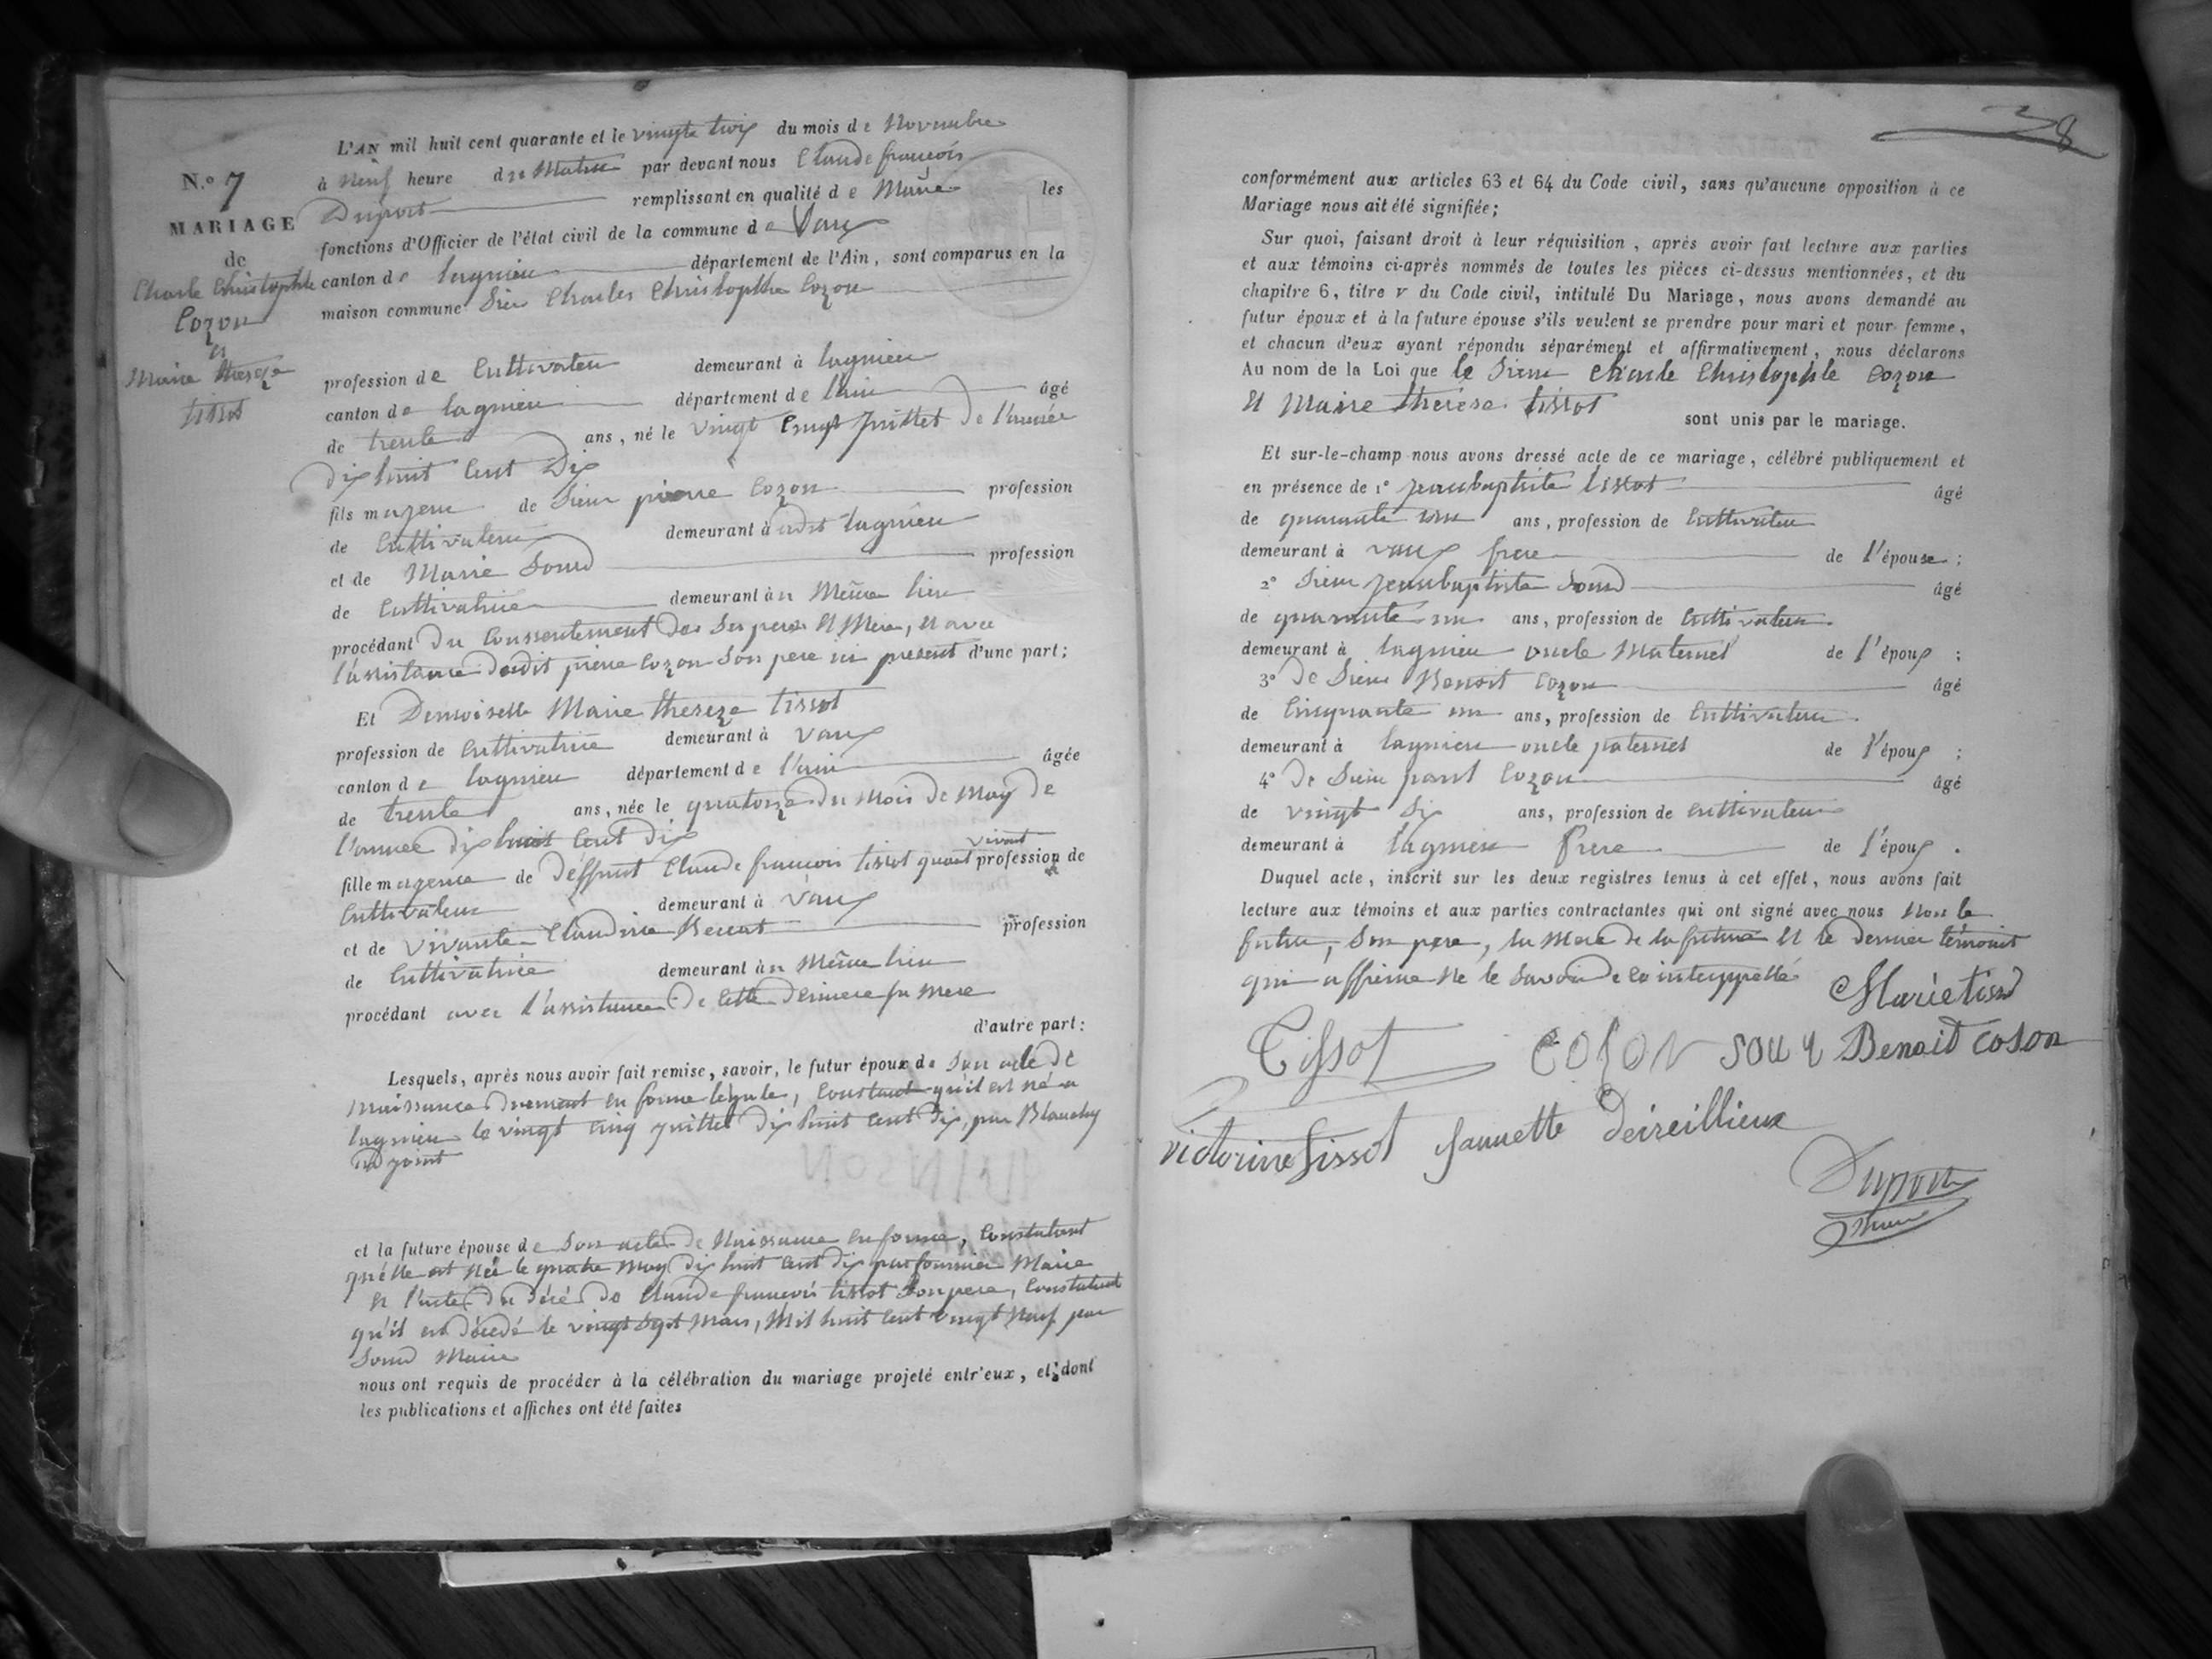 N.º 7
MARIAGE
de
Charle Christophle
Cozon
et
Marie thereze
tissot
L'AN mil huit cent quarante et le vingte trois du mois de Novembre
à Neuf heure du Matin par devant nous Claude françois
Duport remplissant en qualité de Maire les
fonctions d'Officier de l'état civil de la commune de Vaux
canton de lagnieu département de l'Ain, sont comparus en la
maison commune Sieur Charles Christophle Cozon
profession de Cultivateur demeurant à lagnieu
canton de lagnieu département de l'ain âgé
de trente ans, né le vingt Cinq Juillet de l'année
dix huit Cent Dix
fils majeur de Sieur pierre Cozon profession
de Cultivateur demeurant à audit lagnieu
et de Marie Soud profession
de Cultivatrice demeurant au Même lieu
procédant du Consentement des Ses pere et Mere, et avec
l'assistance dudit pierre Cozon Son pere ici présent d'une part;
Et Demoiselle Marie thereze tissot
profession de Cultivatrice demeurant à Vaux
canton de lagnieu département de l'ain âgée
de trente ans, née le quatorze du Mois de May de
l'année dix huit Cent dix
fille majeure de deffunt Claude françois tissot quant vivant profession de
Cultivateur demeurant à Vaux
et de vivante Claudine profession
de Cultivatrice demeurant au Même lieu
procédant avec l'assistance de Cette derniere sa Mere
d'autre part:
Lesquels, après nous avoir fait remise, savoir, le futur époux de Son acte de
Naissance duement en forme légale, Constant qu'il est né a
lagnieu le vingt Cinq Juillet dix huit Cent dix, par Blanchy
adjoint
et la future épouse de Son acte de Naissance en forme, Constatant
qu'elle est Née le quatre May dix huit Cent dix par fournier Maire
et l'acte du décé de Claude françois tissot Son pere, Constatant
qu'il est décédé le vingt Sept Mars, Mil huit Cent vingt Neuf par
Soud Maire
nous ont requis de procéder à la célébration du mariage projeté entr'eux, et dont
les publications et affiches ont été faites
38
conformément aux articles 63 et 64 du Code civil, sans qu'aucune opposition à ce
Mariage nous ait été signifiée;
Sur quoi, faisant droit à leur réquisition, après avoir fait lecture aux parties
et aux témoins ci-après nommés de toutes les pièces ci-dessus mentionnées, et du
chapitre 6, titre V du Code civil, intitulé Du Mariage, nous avons demandé au
futur époux et à la future épouse s'ils veulent se prendre pour mari et pour femme,
et chacun d'eux ayant répondu séparément et affirmativement, nous déclarons
Au nom de la Loi que le Sieur Charle Christophle Cozon
et Marie thérèse tissot sont unis par le mariage.
Et sur-le-champ nous avons dressé acte de ce mariage, célébré publiquement et
en présence de 1º Jeanbaptiste tissot âgé
de quarante ans, profession de Cultivateur
demeurant à vaux frere de l'épouse;
2º Sieur Jeanbaptiste Soud âgé
de quarante un ans, profession de Cultivateur
demeurant à lagnieu oncle Maternel de l'époux;
3º de Sieur Benoit Cozon âgé
de Cinquante un ans, profession de Cultivateur
demeurant à lagnieu oncle paternel de l'époux;
4º de Sieur paul Cozon âgé
de vingt Six ans, profession de Cultivateur
demeurant à lagnieu frere de l'époux.
Duquel acte, inscrit sur les deux registres tenus à cet effet, nous avons fait
lecture aux témoins et aux parties contractantes qui ont signé avec nous Non le
futur, Son pere, la Mere de la future et le dernier témoint
qui affirme Ne le Savoir de ce interppellé
Marie tissot
Tissot Coson Soud Benoit Coson
victorine tissot Jannette
Duport
Maire